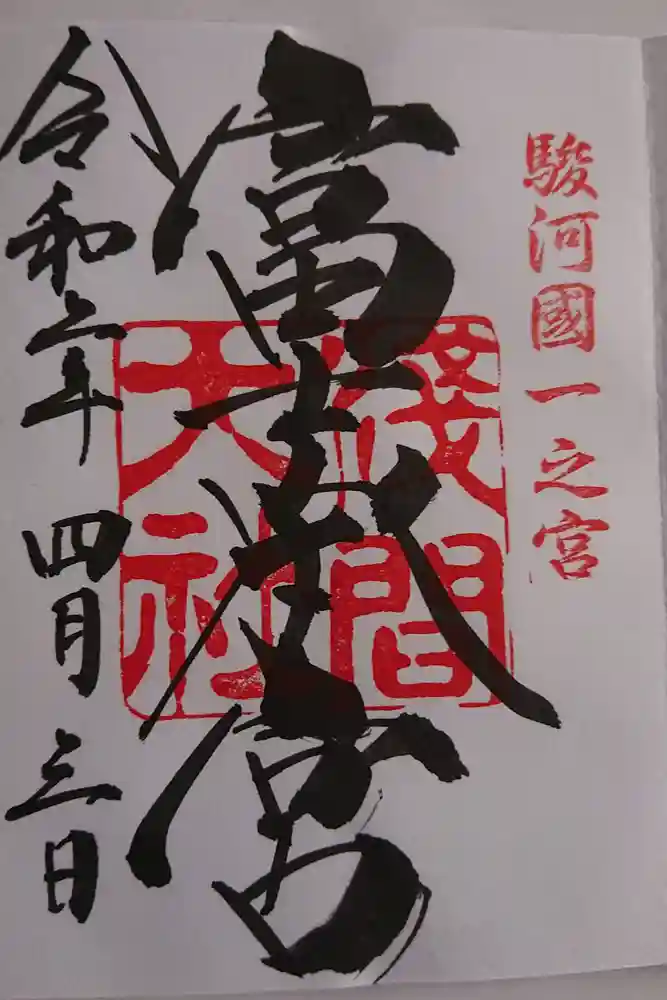 駿河國一之宮
富士浅宮
淺間
大社
令和二年 四月 三日